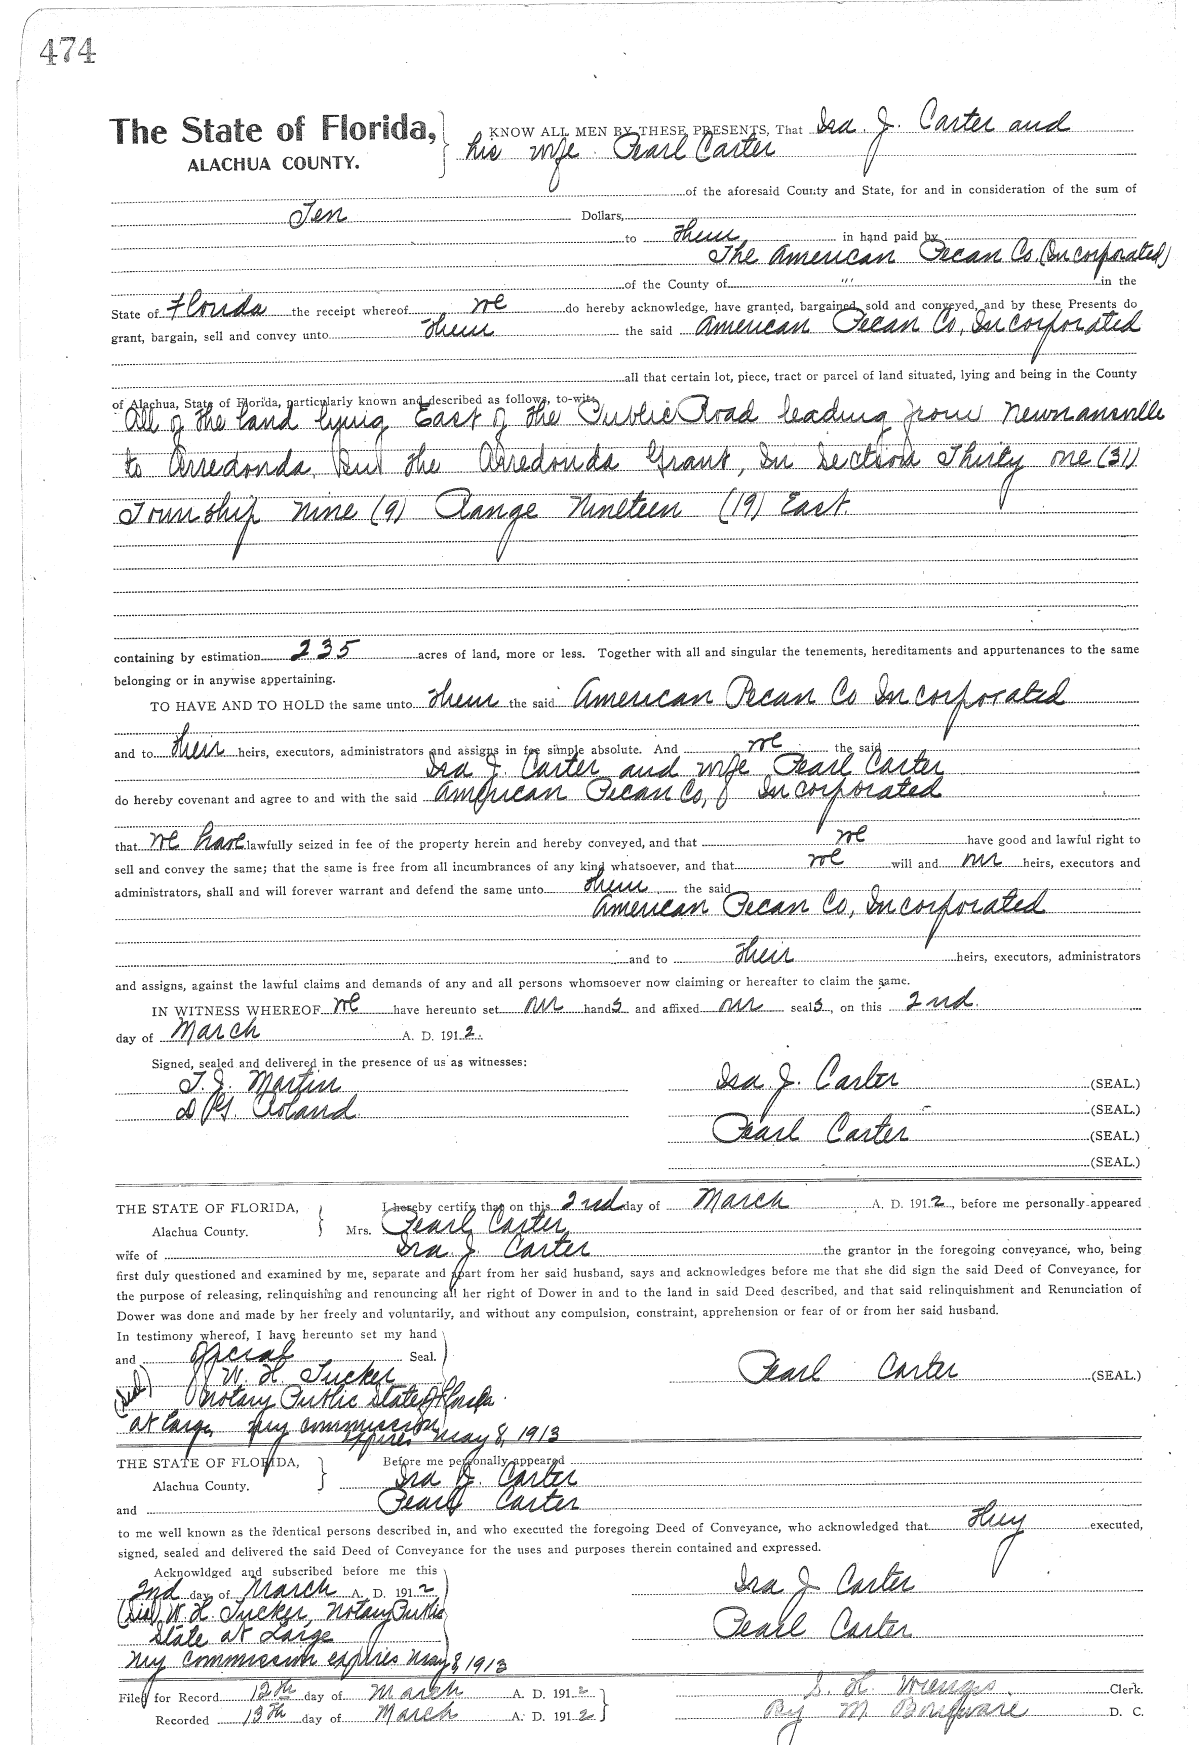 474
The State of Florida,
ALACHUA COUNTY.
KNOW ALL MEN BY THESE PRESENTS, That Ira. J. Carter and
his wife Pearl Carter
of the aforesaid County and State, for and in consideration of the sum of
Ten Dollars,
to them in hand paid by
The American Pecan Co. (Incorporated)
of the County of "" in the
State of Florida the receipt whereof we do hereby acknowledge, have granted, bargained, sold and conveyed, and by these Presents do
grant, bargain, sell and convey unto them the said American Pecan Co, Incorporated
all that certain lot, piece, tract or parcel of land situated, lying and being in the County
of Alachua, State of Florida, particularly known and described as follows, to-wit:
All of the land lying East of the Public Road leading from Newnansville
to Arredonda, the Arredonda Grant, In Section Thirty one (31)
Township Nine (9) Range Nineteen (19) East.
containing by estimation 235 acres of land, more or less. Together with all and singular the tenements, hereditaments and appurtenances to the same
belonging or in anywise appertaining.
TO HAVE AND TO HOLD the same unto them the said American Pecan Co Incorporated
and to their heirs, executors, administrators and assigns in fee simple absolute. And we the said
Ira J. Carter and wife Pearl Carter
do hereby covenant and agree to and with the said American Pecan Co, Incorporated
that we have lawfully seized in fee of the property herein and hereby conveyed, and that we have good and lawful right to
sell and convey the same; that the same is free from all incumbrances of any kind whatsoever, and that we will and our heirs, executors and
administrators, shall and will forever warrant and defend the same unto them the said
American Pecan Co, Incorporated
and to their heirs, executors, administrators
and assigns, against the lawful claims and demands of any and all persons whomsoever now claiming or hereafter to claim the same.
IN WITNESS WHEREOF we have hereunto set our hands and affixed our seals, on this 2nd.
day of March A. D. 1912.
Signed, sealed and delivered in the presence of us as witnesses:
T. J. Martin
Roland
Ira J. Carter (SEAL.)
(SEAL.)
Pearl Carter (SEAL.)
(SEAL.)
THE STATE OF FLORIDA,
Alachua County.
I hereby certify that on this 2nd day of March A. D. 1912, before me personally appeared
Mrs. Pearl Carter
wife of Ira J. Carter the grantor in the foregoing conveyance, who, being
first duly questioned and examined by me, separate and apart from her said husband, says and acknowledges before me that she did sign the said Deed of Conveyance, for
the purpose of releasing, relinquishing and renouncing all her right of Dower in and to the land in said Deed described, and that said relinquishment and Renunciation of
Dower was done and made by her freely and voluntarily, and without any compulsion, constraint, apprehension or fear of or from her said husband.
In testimony whereof, I have hereunto set my hand
and official Seal.
W. H. Tucker
(Seal) Notary Public State of Florida.
at Large, My commission
expires May 8, 1913
Pearl Carter (SEAL.)
THE STATE OF FLORIDA,
Alachua County.
Before me personally appeared
Ira J. Carter
and Pearl Carter
to me well known as the identical persons described in, and who executed the foregoing Deed of Conveyance, who acknowledged that they executed,
signed, sealed and delivered the said Deed of Conveyance for the uses and purposes therein contained and expressed.
Acknowldged and subscribed before me this
2nd day of March A. D. 1912
(Seal) W. H. Tucker, Notary Public
State at Large
My commission expires May 8, 1913
Ira J Carter
Pearl Carter
Filed for Record 12th day of March A. D. 1912
Recorded 13th day of March A. D. 1912
S. H. Wienges Clerk.
By M D. C.